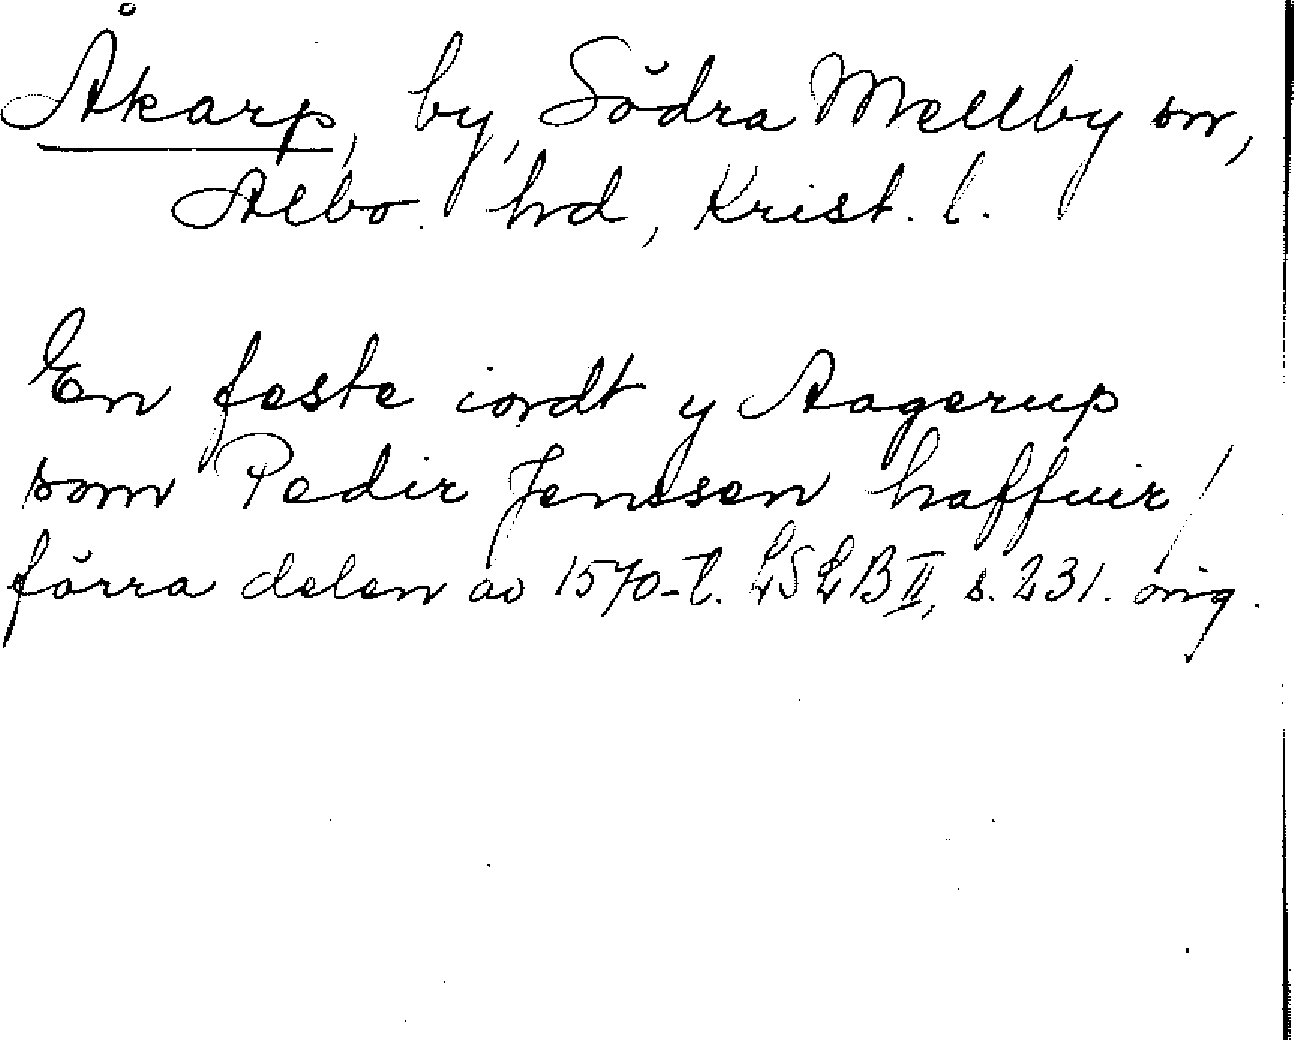 Åkarp, by, Södra Mellby sn,
Albo hd, Krist. l.
En feste iordt y Aagerup
som Pedir Jenssen haffuir /
förra delen av 1570-t. LSLB II, s. 231. orig.